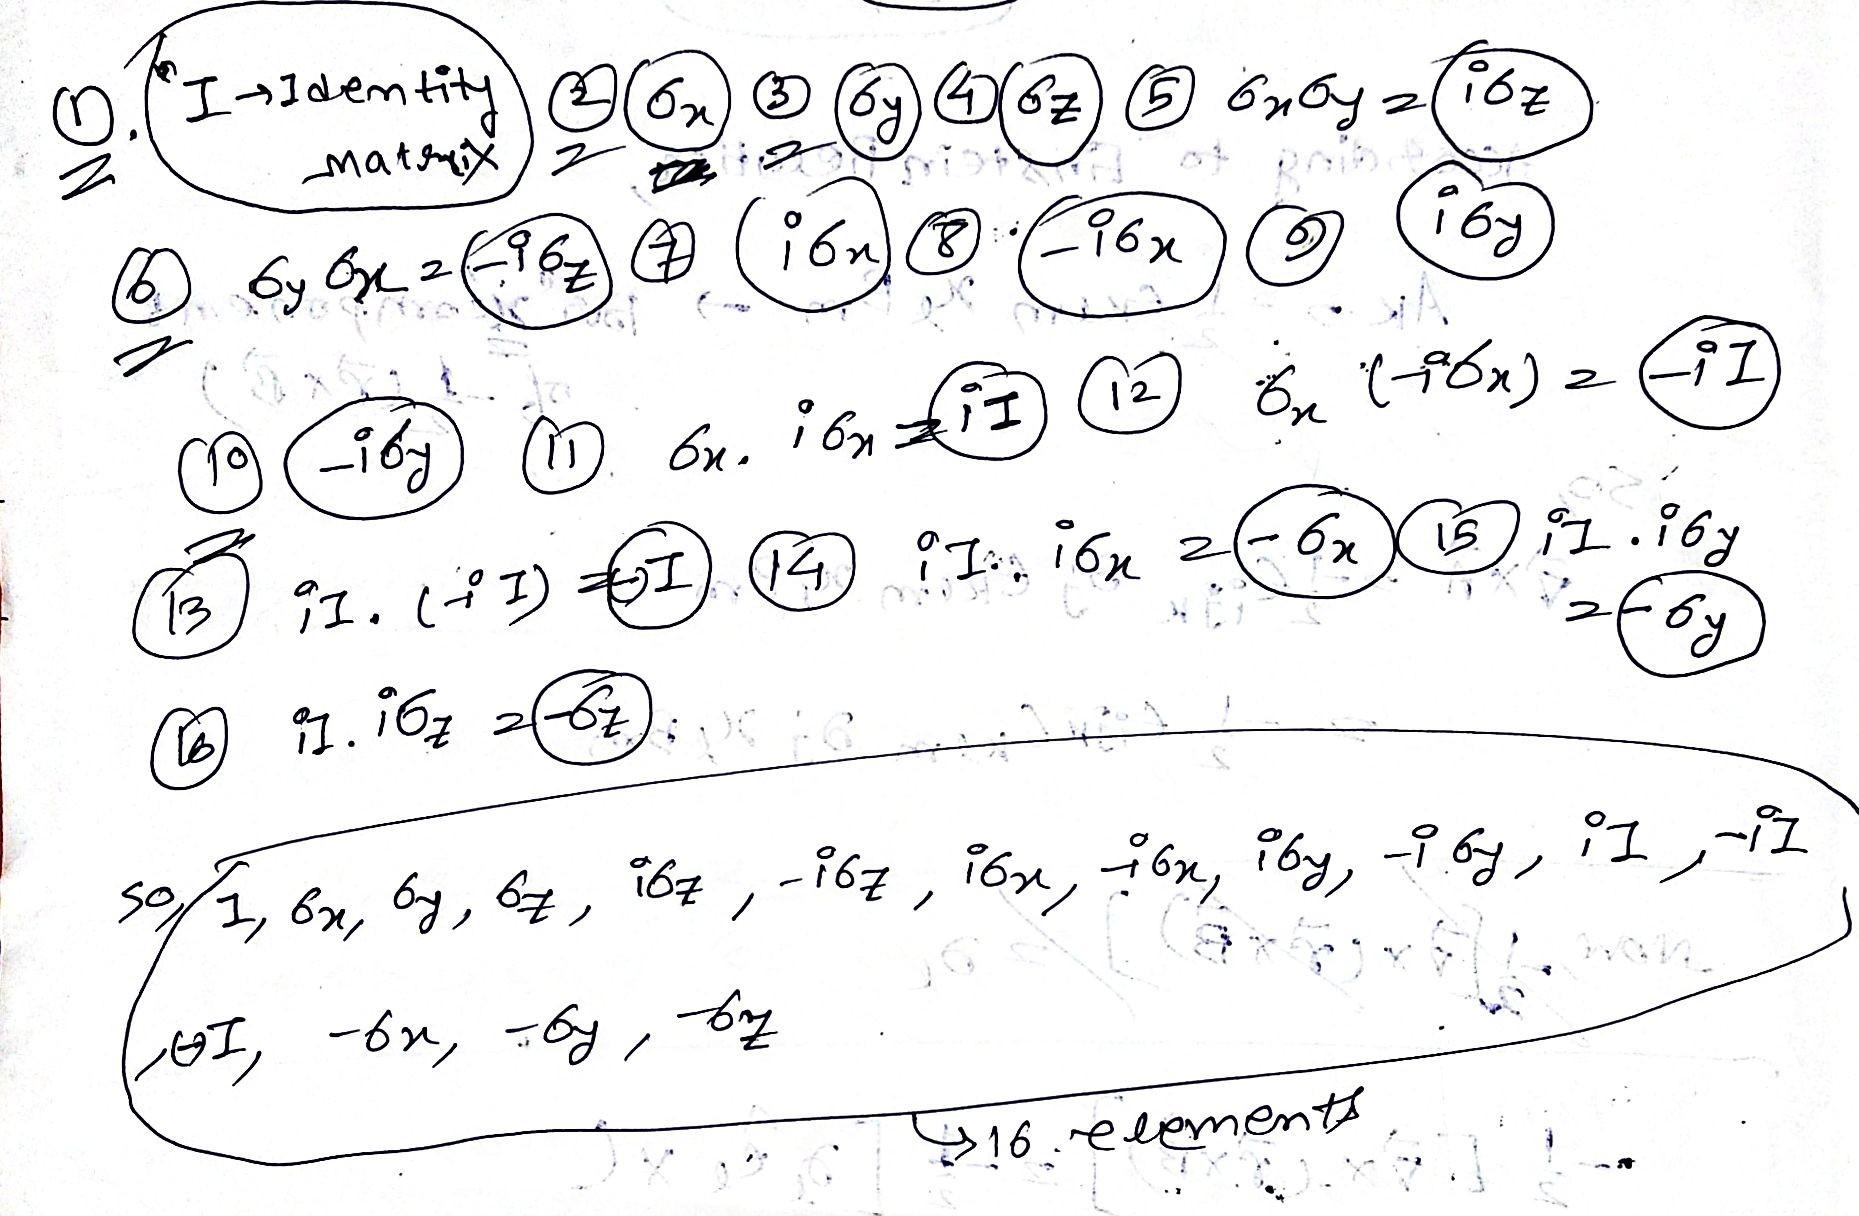 ①. I → Identity ② σx ③ σy ④ σz ⑤ σxσy = iσz
matrix
⑥ σy σx = -iσz ⑦ iσx ⑧ -iσx ⑨ iσy
⑩ -iσy ⑪ σx. iσx = iI ⑫ σx (-iσx) = -iI
⑬ iI. (-iI) = I ⑭ iI. iσx = -σx ⑮ iI. iσy
= -σy
⑯ iI. iσz = -σz
so, I, σx, σy, σz, iσz, -iσz, iσx, -iσx, iσy, -iσy, iI, -iI
, -I, -σx, -σy, -σz
↳ 16 elements